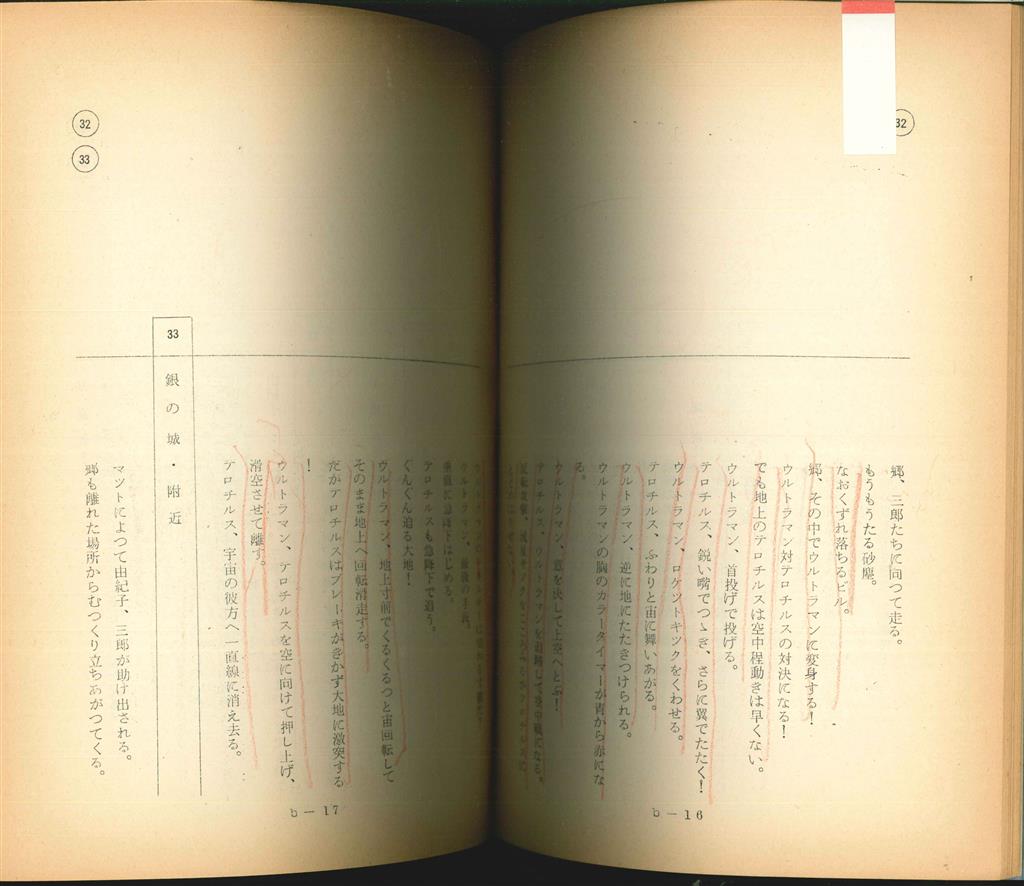 32
郷、三郎たちに向つて走る。
もうもうたる砂塵。
なおくずれ落ちるビル。
郷、その中でウルトラマンに変身する！
ウルトラマン対テロチルスの対決になる！
でも地上のテロチルスは空中程動きは早くない。
ウルトラマン、首投げで投げる。
テロチルス、鋭い嘴でつゝき、さらに翼でたたく！
ウルトラマン、ロケントキツクをくわせる。
テロチルス、ふわりと宙に舞いあがる。
ウルトラマン、逆に地にたたきつけられる。
ウルトラマンの胸のカラータイマーが青から赤にな
る。
ウルトラマン、意を決して上空へとぶ！
テロチルス、ウルトラマンを追跡して空中戦になる。
b－16
32
33
ウルトラマン、最後の手段。
垂直に急降下はじめる。
テロチルスも急降下で追う。
ぐんぐん迫る大地！
ウルトラマン、地上寸前でくるくるつと宙回転して
そのまま地上へ回転滑走する。
だがテロチルスはブレーキがきかず大地に激突する
！
ウルトラマン、テロチルスを空に向けて押し上げ、
滑空させて離す。
テロチルス、宇宙の彼方へ一直線に消え去る。
33 銀の城・附近
マツトによつて由紀子、三郎が助け出される。
郷も離れた場所からむつくり立ちあがつてくる。
b－17